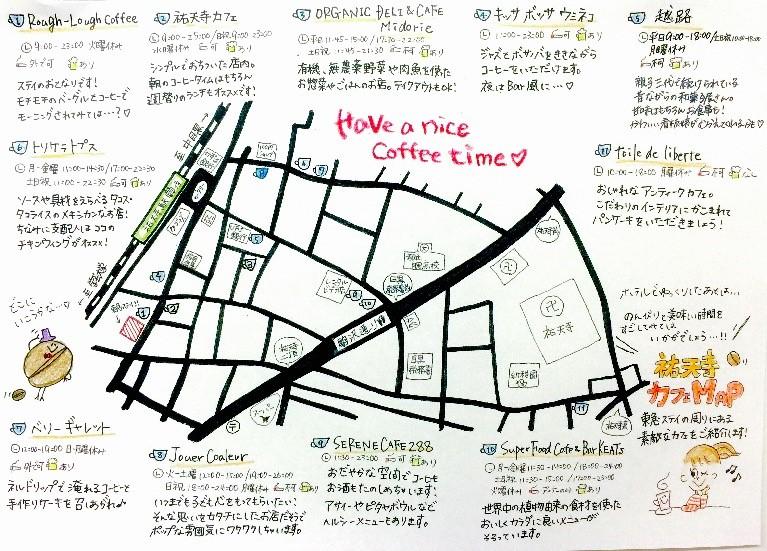 1 Rough-Lough Coffee
9:00-23:00 火曜休み
外で可 あり
ステイのおとなりです!
モチモチのベーグルとコーヒーで
モーニングされてみては…?♡
2 祐天寺カフェ
可 あり
シンプルでおちついた店内。
朝のコーヒータイムはもちろん
週替りのランチもオススメです!
3 ORGANIC DELI & CAFE
Midorie
平日 11:45-15:00/17:30-22:00
土日祝 11:45-21:30 可 あり
有機、無農薬野菜や肉魚を使った
お惣菜やごはんのお店。テイクアウトもOK!
4 キッサ ボッサ ウミネコ
11:00-23:00 可 あり
ジャズとボサノバをききながら
コーヒーをいただけます。
夜はBar風に…♡
5 越路
平日9:00-18:00/土日祝10:00-18:00
月曜休み
可 あり
親子三代で続けられている
昔ながらの和菓子屋さん。
甘味はもちろんお食事も!
Have a nice
Coffee time♡
6 トリケラトプス
月-金曜 11:00-14:30/17:00-22:30
土日祝 11:00-22:30 可 あり
ソースや具材をえらべるタコス・
タコライスのメキシカンなお店!
ちなみに支配人はココの
チキンウィングがオススメ!
11 toile de liberte
10:00-18:00 月曜休み 可 なし
おしゃれなアンティークカフェ。
こだわりのインテリアにかこまれて
パンケーキをいただきましょう!
祐天寺駅
駒沢通り
祐天寺
どこに
いこうかな…
ホテルでゆっくりしたあとは…
のんびりと美味しい時間を
すごしてみては
いかがでしょう…!!
祐天寺
カフェMAP
東急ステイの周りにある
素敵なカフェをご紹介します!
7 ベリー ギャレット
12:00-19:00 日・月曜休み
外で可 あり
ネルドリップで淹れるコーヒーと
手作りケーキを召しあがれ♪
8 Jouer Coaleur
火-土曜 12:00-15:00/19:00-26:00
日祝 18:00-24:00 月曜休み 可 あり
いつまでも子ども心をもってもらいたい!
そんな思いをカタチにしたお店だそうで
ポップな雰囲気にワクワクしちゃいます。
9 SERENE CAFE 288
11:30-23:00 可 あり
おだやかな空間でコーヒーも
お酒もたのしめちゃいます!
アサイーやピタヤボウルなど
ヘルシーメニューもあります。
10 Super Food Cafe & Bar KEATS
月-金曜 11:30-14:00/18:00-24:00
土日祝 11:30-15:00/17:00-23:00
火曜休み あり
世界中の植物由来の食材を使った
おいしくカラダに良いメニューが
そろっています。